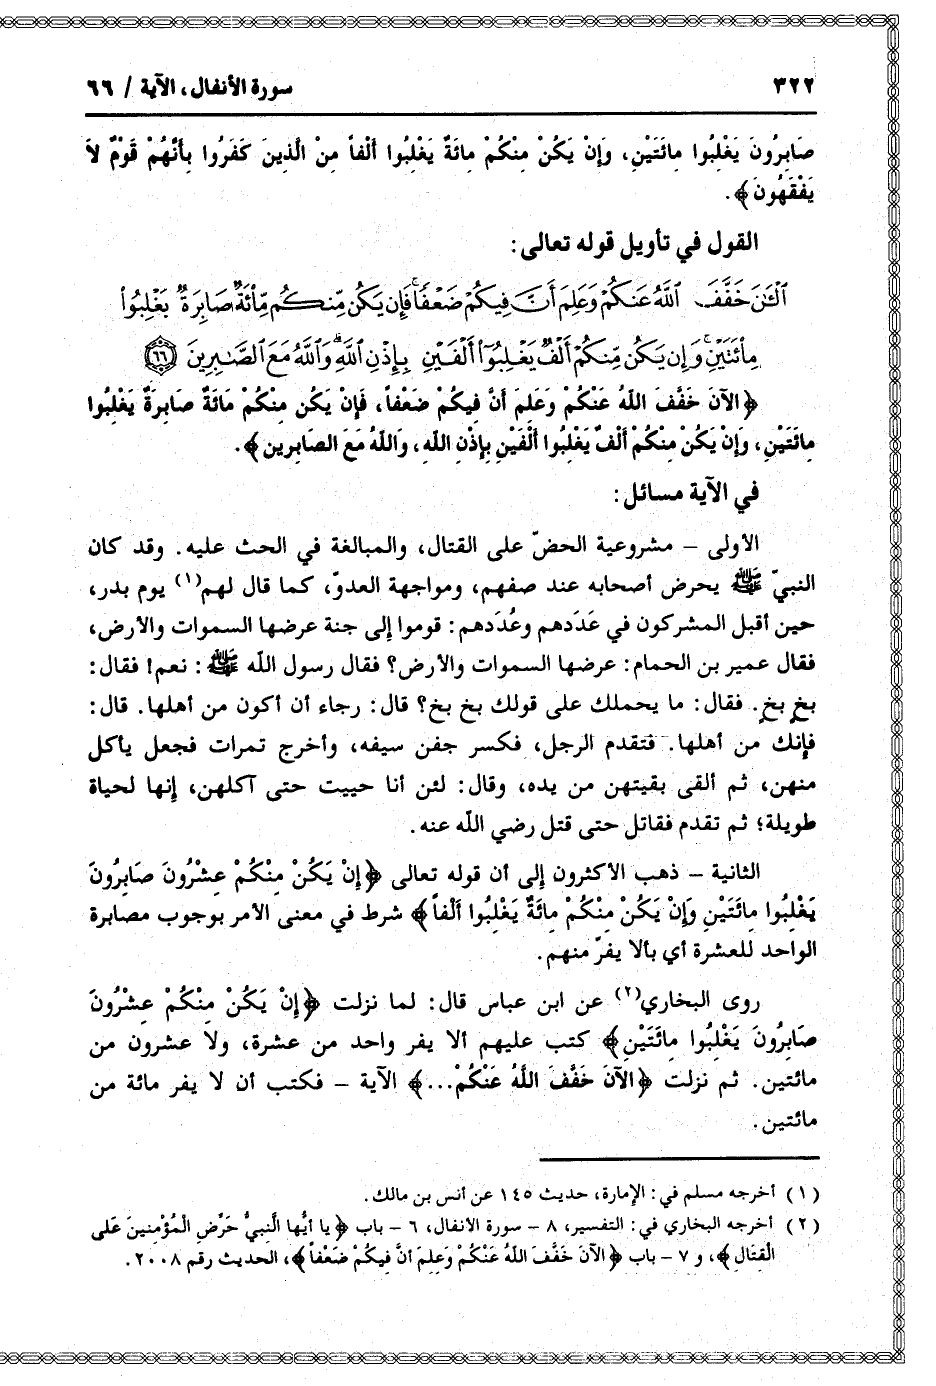 ٣٢٢
سورة الأنفال، الآية / ٦٦
صَابِرُونَ يَغْلِبُوا مِائَتَيْنِ، وَإِنْ يَكُنْ مِنْكُمْ مِائَةٌ يَغْلِبُوا أَلْفاً مِنَ الَّذِينَ كَفَرُوا بِأَنَّهُمْ قَوْمٌ لاَ
يَفْقَهُونَ﴾.
القول في تأويل قوله تعالى:
ٱلْـَٰٔنَ خَفَّفَ ٱللَّهُ عَنكُمْ وَعَلِمَ أَنَّ فِيكُمْ ضَعْفًا ۚ فَإِن يَكُن مِّنكُم مِّا۟ئَةٌ صَابِرَةٌ يَغْلِبُوا۟
مِا۟ئَتَيْنِ ۚ وَإِن يَكُن مِّنكُمْ أَلْفٌ يَغْلِبُوٓا۟ أَلْفَيْنِ بِإِذْنِ ٱللَّهِ ۗ وَٱللَّهُ مَعَ ٱلصَّٰبِرِينَ ٦٦
﴿الآنَ خَفَّفَ اللَّهُ عَنْكُمْ وَعَلِمَ أَنَّ فِيكُمْ ضَعْفاً، فَإِنْ يَكُن مِنْكُمْ مَائَةٌ صَابِرَةٌ يَغْلِبُوا
مِائَتَيْنِ، وَإِنْ يَكُنْ مِنْكُمْ أَلْفٌ يَغْلِبُوا أَلْفَيْنِ بِإِذْنِ اللَّهِ، وَاللَّهُ مَعَ الصَّابِرِين﴾.
في الآية مسائل:
الأولى – مشروعية الحضّ على القتال، والمبالغة في الحث عليه. وقد كان
النبيّ ﷺ يحرض أصحابه عند صفهم، ومواجهة العدوّ، كما قال لهم(١) يوم بدر،
حين أقبل المشركون في عَدَدهم وعُدَدهم: قوموا إلى جنة عرضها السموات والأرض،
فقال عمير بن الحمام: عرضها السموات والأرض؟ فقال رسول الله ﷺ: نعم! فقال:
بخٍ بخٍ. فقال: ما يحملك على قولك بخ بخ؟ قال: رجاء أن أكون من أهلها. قال:
فإنك من أهلها. فتقدم الرجل، فكسر جفن سيفه، وأخرج تمرات فجعل يأكل
منهن، ثم ألقى بقيتهن من يده، وقال: لئن أنا حييت حتى آكلهن، إنها لحياة
طويلة؛ ثم تقدم فقاتل حتى قتل رضي الله عنه.
الثانية – ذهب الأكثرون إلى أن قوله تعالى ﴿إِنْ يَكُنْ مِنْكُمْ عِشْرُونَ صَابِرُونَ
يَغْلِبُوا مِائَتَيْنِ وَإِنْ يَكُنْ مِنْكُمْ مِائَةٌ يَغْلِبُوا أَلْفاً﴾ شرط في معنى الأمر بوجوب مصابرة
الواحد للعشرة أي بألا يفرّ منهم.
روى البخاري(٢) عن ابن عباس قال: لما نزلت ﴿إِنْ يَكُنْ مِنْكُمْ عِشْرُونَ
صَابِرُونَ يَغْلِبُوا مِائَتَيْنِ﴾ كتب عليهم ألا يفر واحد من عشرة، ولا عشرون من
مائتين. ثم نزلت ﴿الآنَ خَفَّفَ اللَّهُ عَنْكُمْ...﴾ الآية – فكتب أن لا يفر مائة من
مائتين.
(١) أخرجه مسلم في: الإمارة، حديث ١٤٥ عن أنس بن مالك.
(٢) أخرجه البخاري في: التفسير، ٨ – سورة الأنفال، ٦ – باب ﴿يا أيُّها النَّبيُّ حَرِّضِ الْمُؤْمنينَ عَلى
الْقتَال﴾، و ٧ – باب ﴿الآنَ خَفَّفَ اللَّهُ عَنْكُمْ وَعَلِمَ أنَّ فِيكُمْ ضَعْفاً﴾، الحديث رقم ٢٠٠٨.